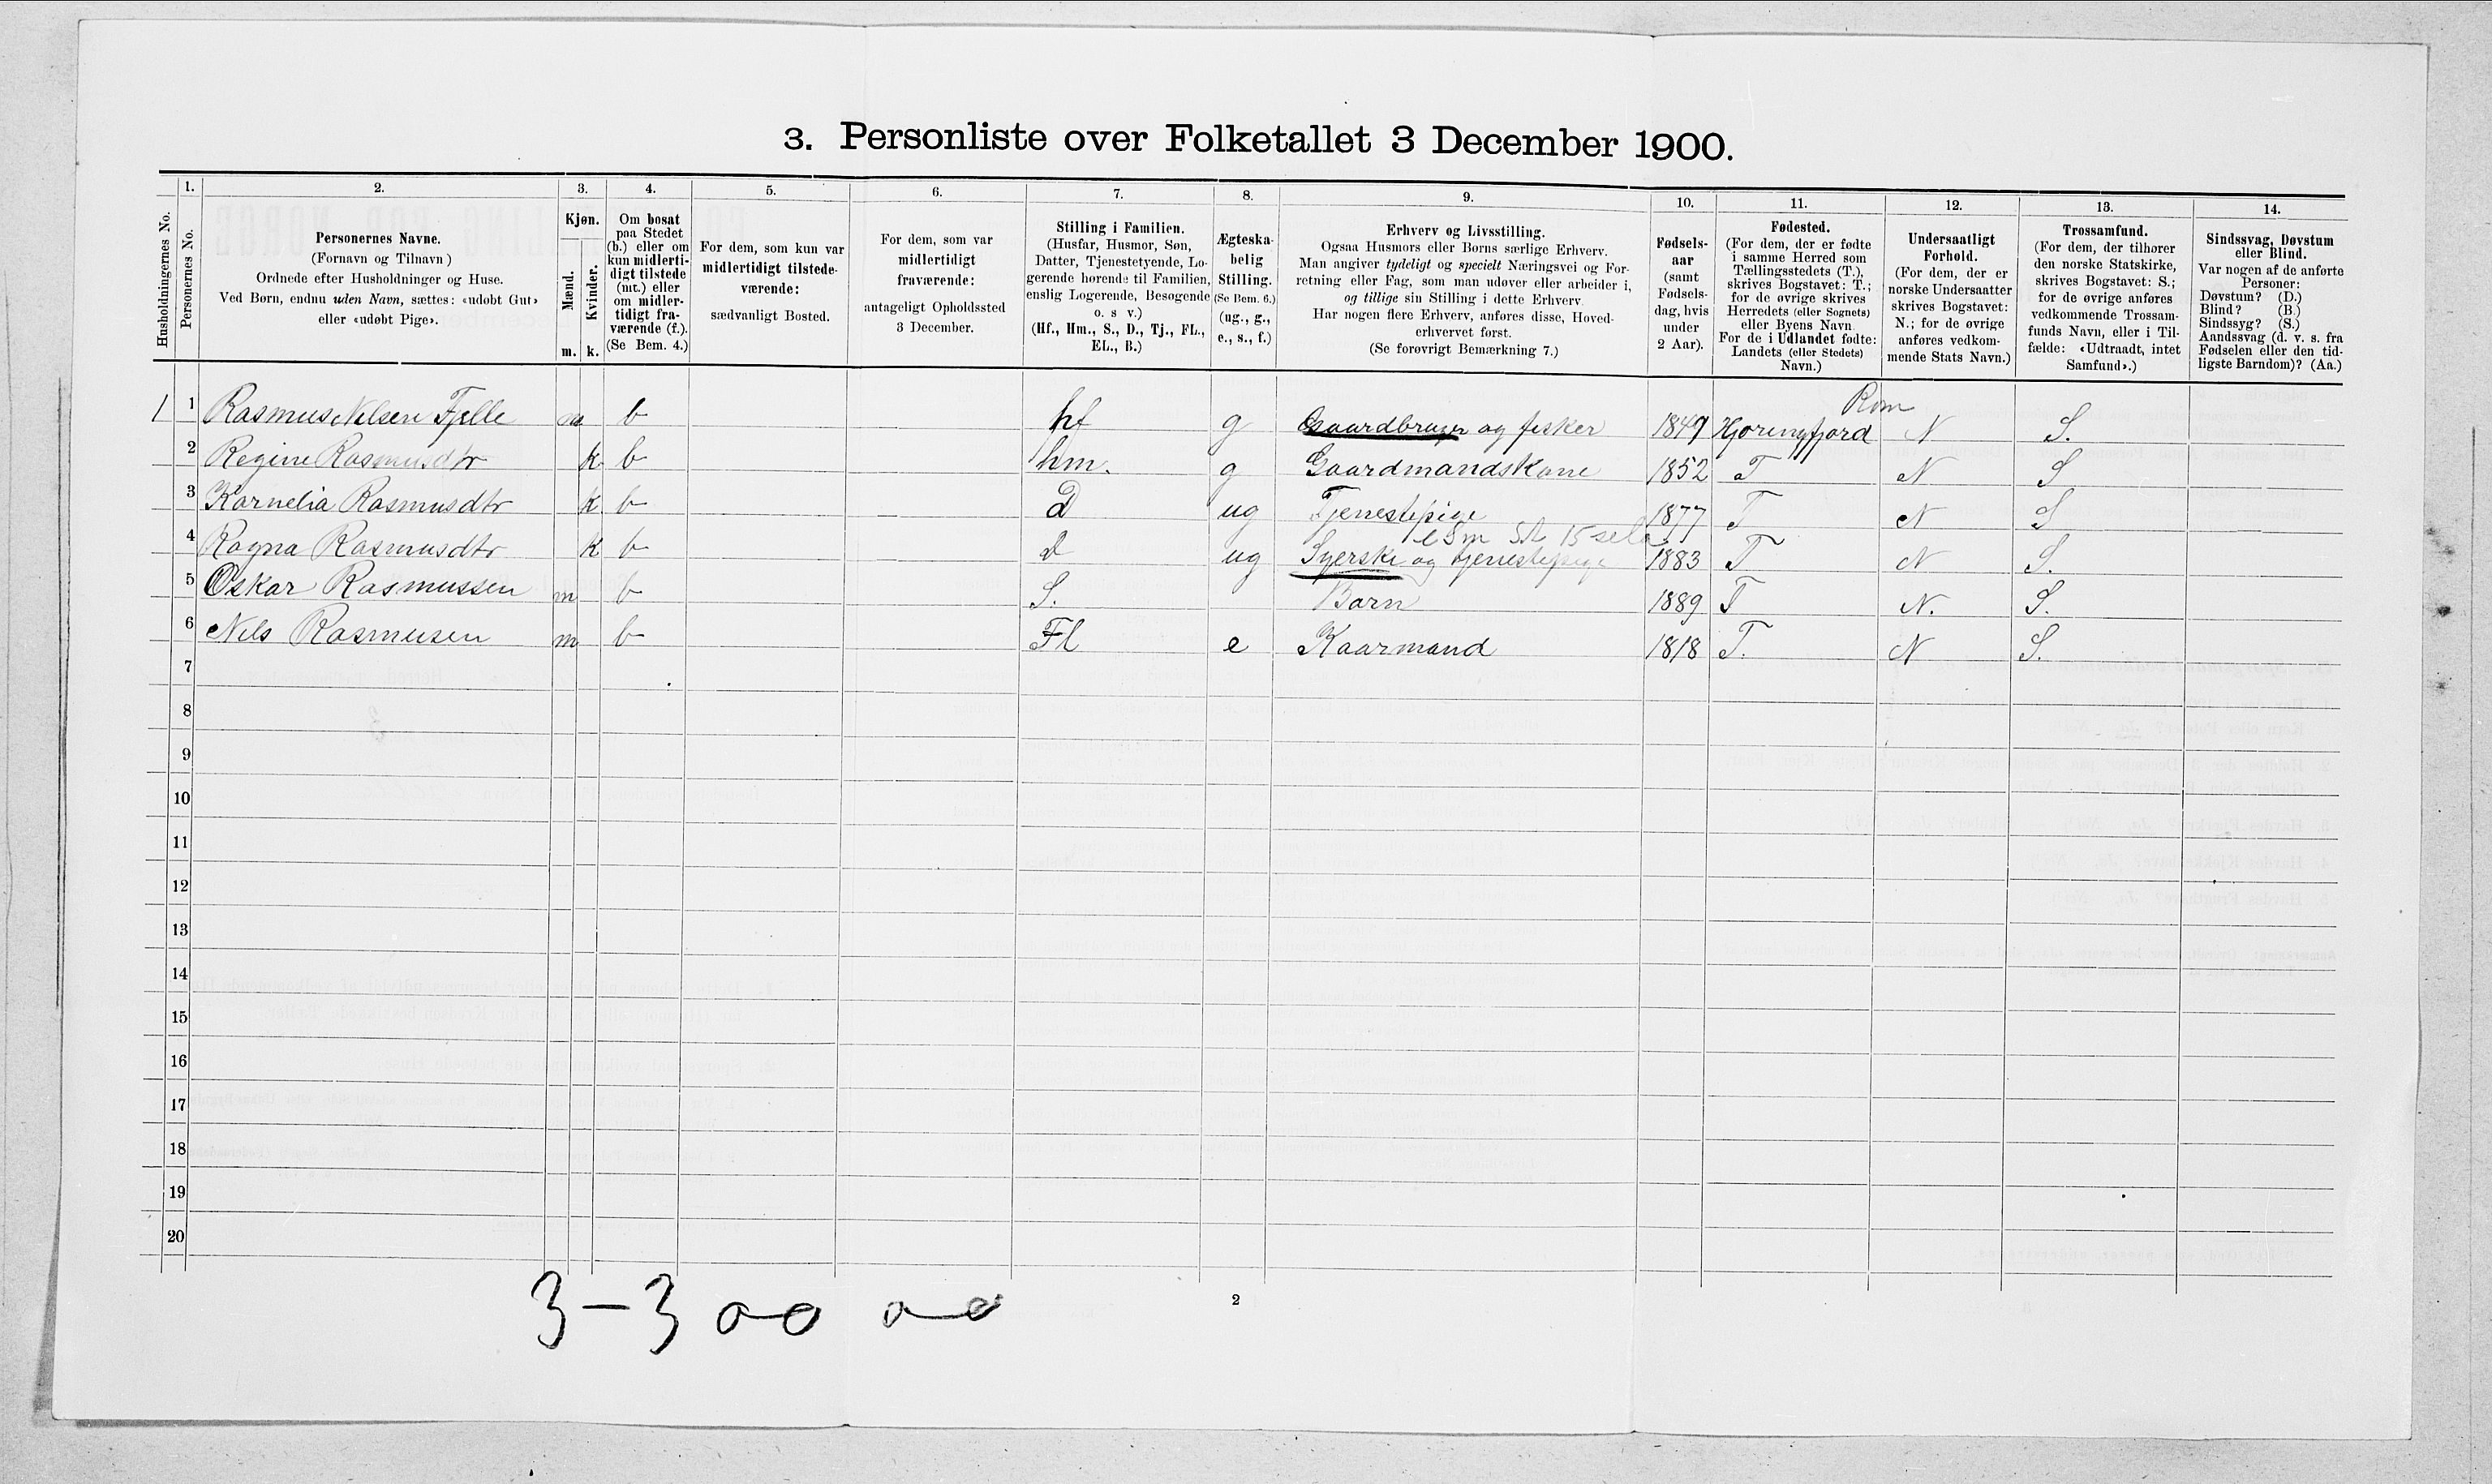 3. Personliste over Folketallet 3 December 1900.
Husholdningernes No.
1.
Personernes No.
2.
Personernes Navne.
(Fornavn og Tilnavn)
Ordnede efter Husholdninger og Huse.
Ved Børn, endnu uden Navn, sættes: «udøbt Gut»
eller «udøbt Pige».
3.
Kjøn.
Mænd.
Kvinder.
m. k.
4.
Om bosat
paa Stedet
(b.) eller om
kun midlerti-
digt tilstede
(mt.) eller
om midler-
tidigt fra-
værende (f.).
(Se Bem. 4.)
5.
For dem, som kun var
midlertidigt tilstede-
værende:
sædvanligt Bosted.
6.
For dem, som var
midlertidigt
fraværende:
antageligt Opholdssted
3 December.
7.
Stilling i Familien.
(Husfar, Husmor, Søn,
Datter, Tjenestetyende, Lo-
gerende hørende til Familien,
enslig Logerende, Besøgende
o. s v.)
(Hf., Hm., S., D., Tj., FL.,
EL., B.)
8.
Ægteska-
belig
Stilling.
(Se Bem. 6.)
(ug., g.,
e., s., f.)
9.
Erhverv og Livsstilling.
Ogsaa Husmors eller Børns særlige Erhverv.
Man angiver tydeligt og specielt Næringsvei og For-
retning eller Fag, som man udøver eller arbeider i,
og tillige sin Stilling i dette Erhverv.
Har nogen flere Erhverv, anføres disse, Hoved-
erhvervet først.
(Se forøvrigt Bemærkning 7.)
10.
Fødsels-
aar
(samt
Fødsels-
dag, hvis
under
2 Aar).
11.
Fødested.
(For dem, der er fødte
i samme Herred som
Tællingsstedets (T.),
skrives Bogstavet: T.;
for de øvrige skrives
Herredets (eller Sognets)
eller Byens Navn.
For de i Udlandet fødte:
Landets (eller Stedets)
Navn.)
12.
Undersaatligt
Forhold.
(For dem, der er
norske Undersaatter
skrives Bogstavet:
N.; for de øvrige
anføres vedkom-
mende Stats Navn.)
13.
Trossamfund.
(For dem, der tilhører
den norske Statskirke,
skrives Bogstavet: S.;
for de øvrige anføres
vedkommende Trossam-
funds Navn, eller i Til-
fælde: «Udtraadt, intet
Samfund».)
14.
Sindssvag, Døvstum
eller Blind.
Var nogen af de anførte
Personer:
Døvstum? (D.)
Blind? (B.)
Sindssyg? (S.)
Aandssvag (d. v. s. fra
Fødselen eller den tid-
ligste Barndom)? (Aa.)
Rom
1 1 Rasmus Nilsen Fjelle m b hf g Gaardbruger og fisker 1849 Hjorungfjord N S.
2 Regine Rasmusdtr k b hm. g Gaardmandskone 1852 T N S
3 Karnelia Rasmusdtr k b D ug Tjenestepige 1877 T N S
15
4 Ragna Rasmusdtr k b d ug Syerske og tjenestepige 1883 T N S.
5 Oskar Rasmussen m b S. Barn 1889 T N. S.
6 Nils Rasmusen m b Fl e Kaarmand 1818 T. N S.
7
8
9
10
11
12
13
14
15
16
17
18
19
20
3-3 00 00
2